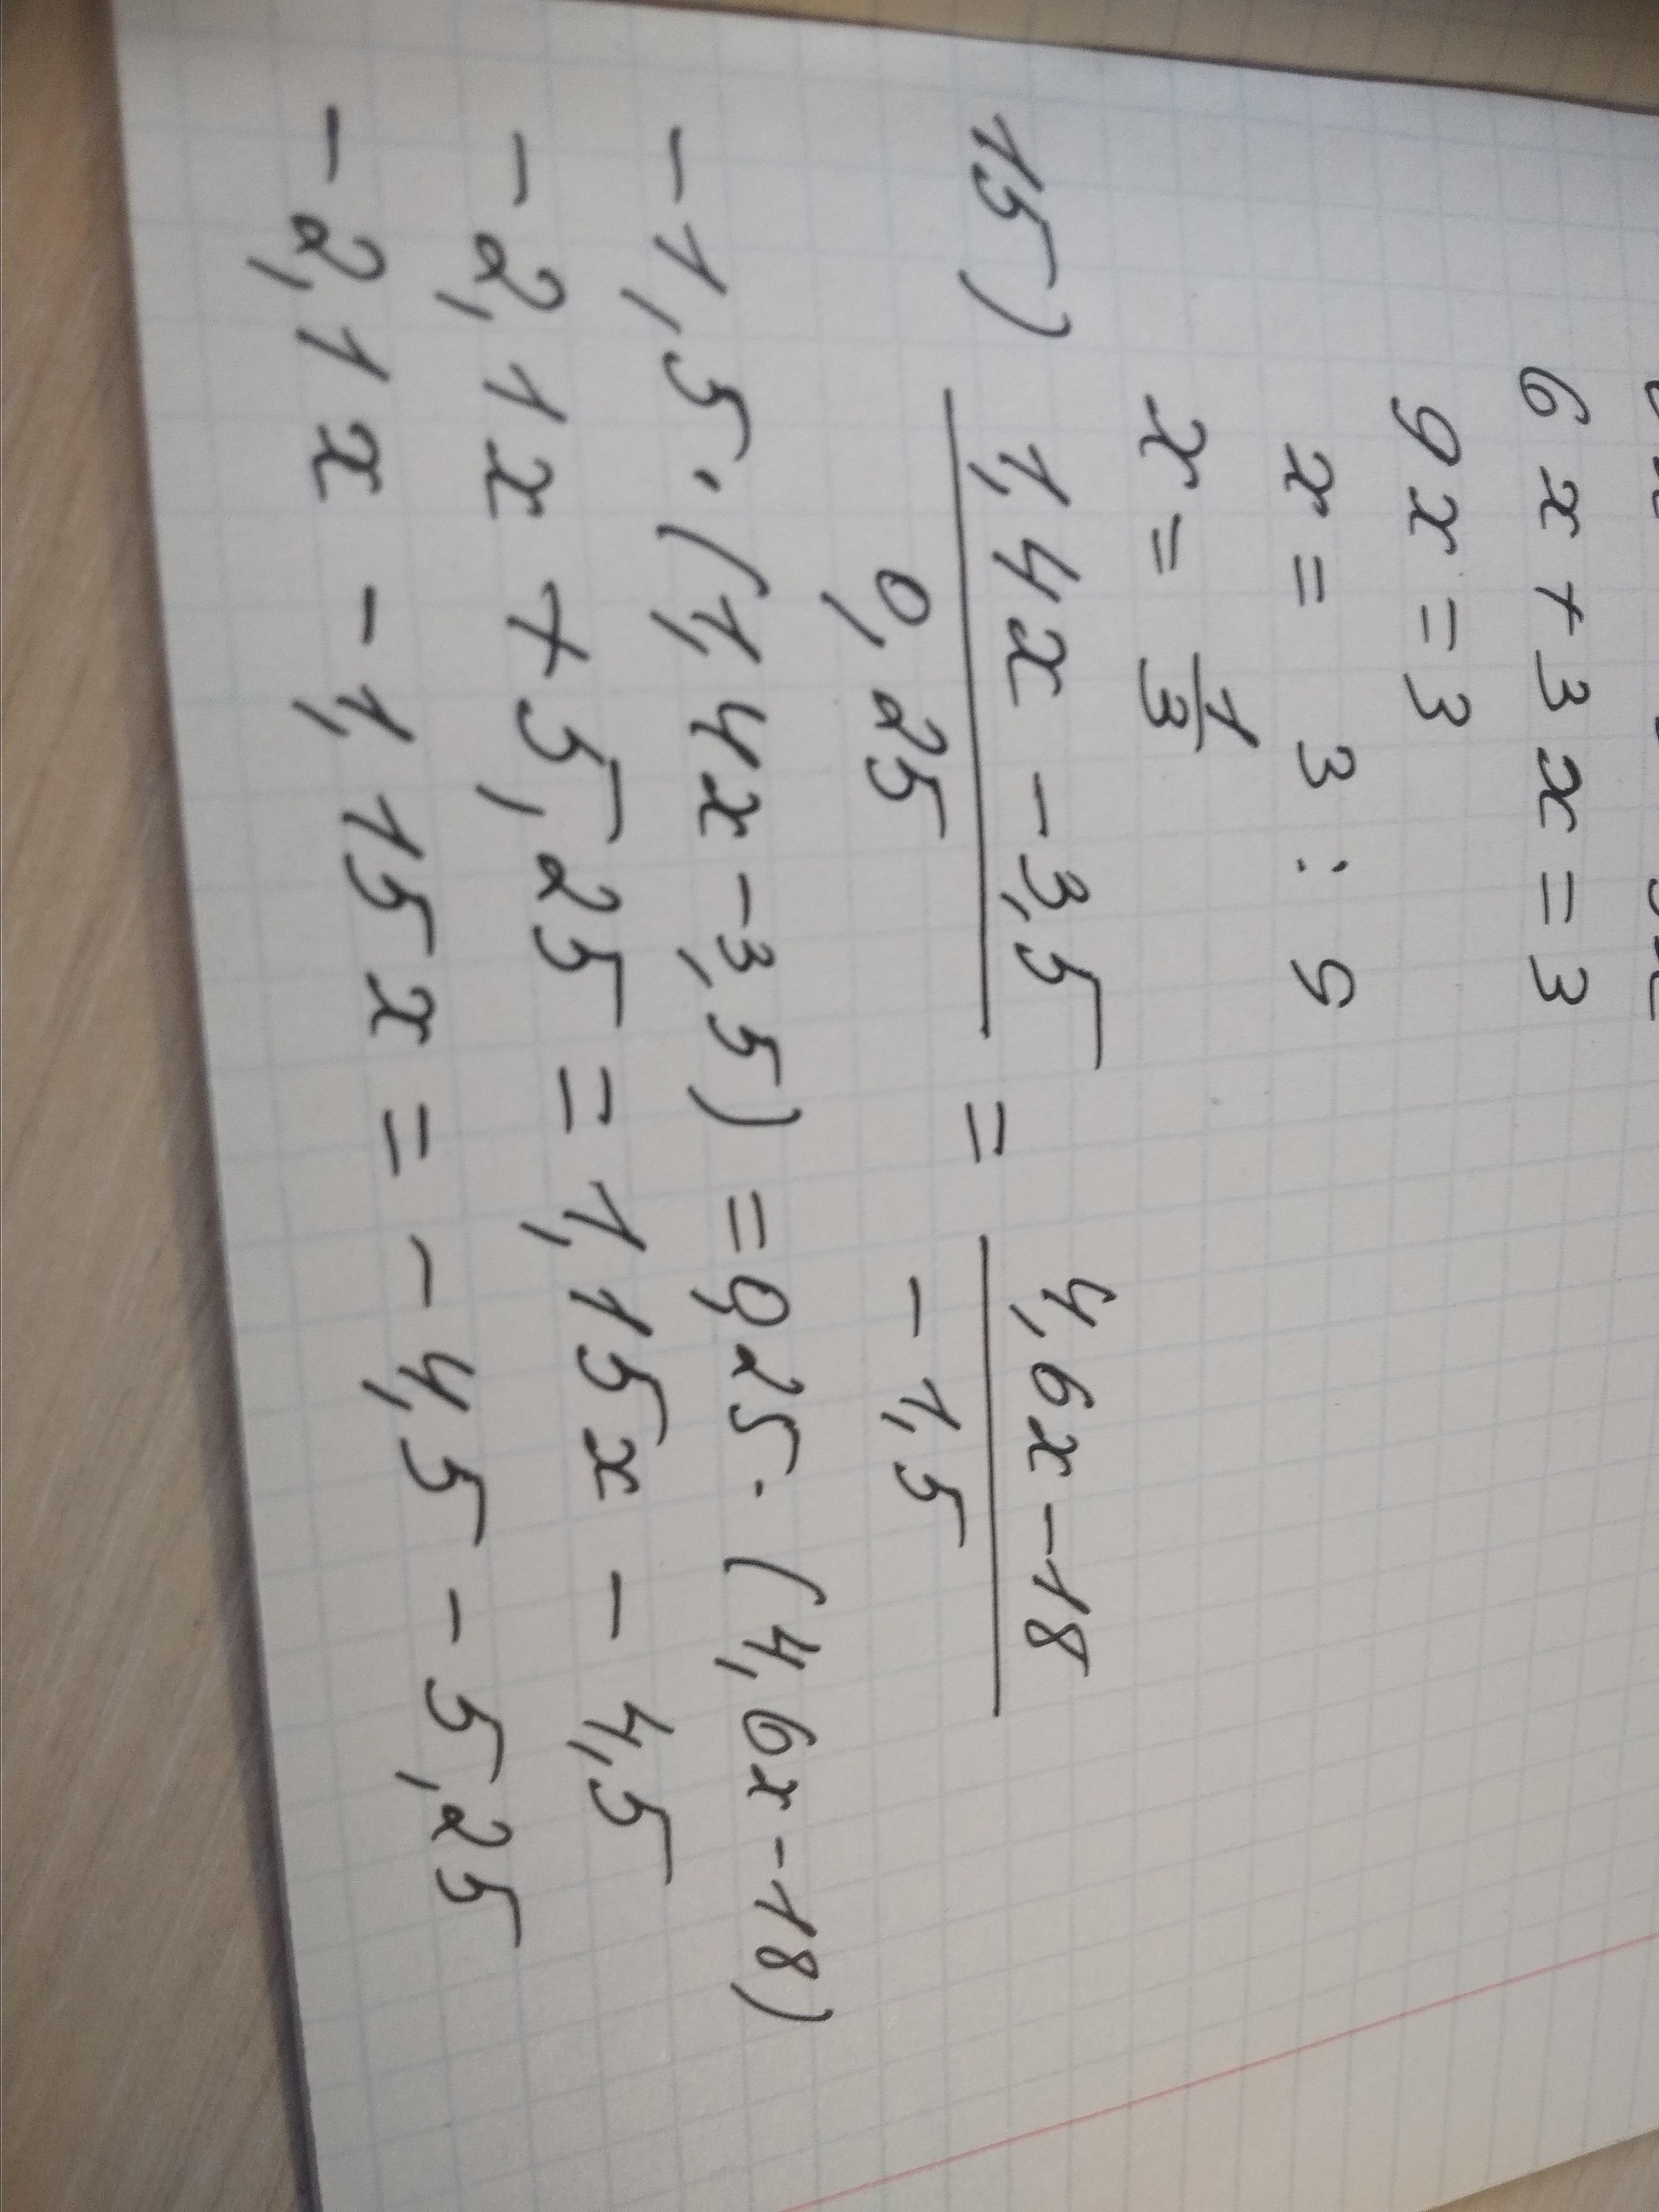 6x + 3x = 3
9x = 3
x = 3 : 9
x = 1/3
15) (1,4x - 3,5)/0,25 = (4,6x - 18)/-1,5
-1,5 · (1,4x - 3,5) = 0,25 · (4,6x - 18)
-2,1x + 5,25 = 1,15x - 4,5
-2,1x - 1,15x = -4,5 - 5,25